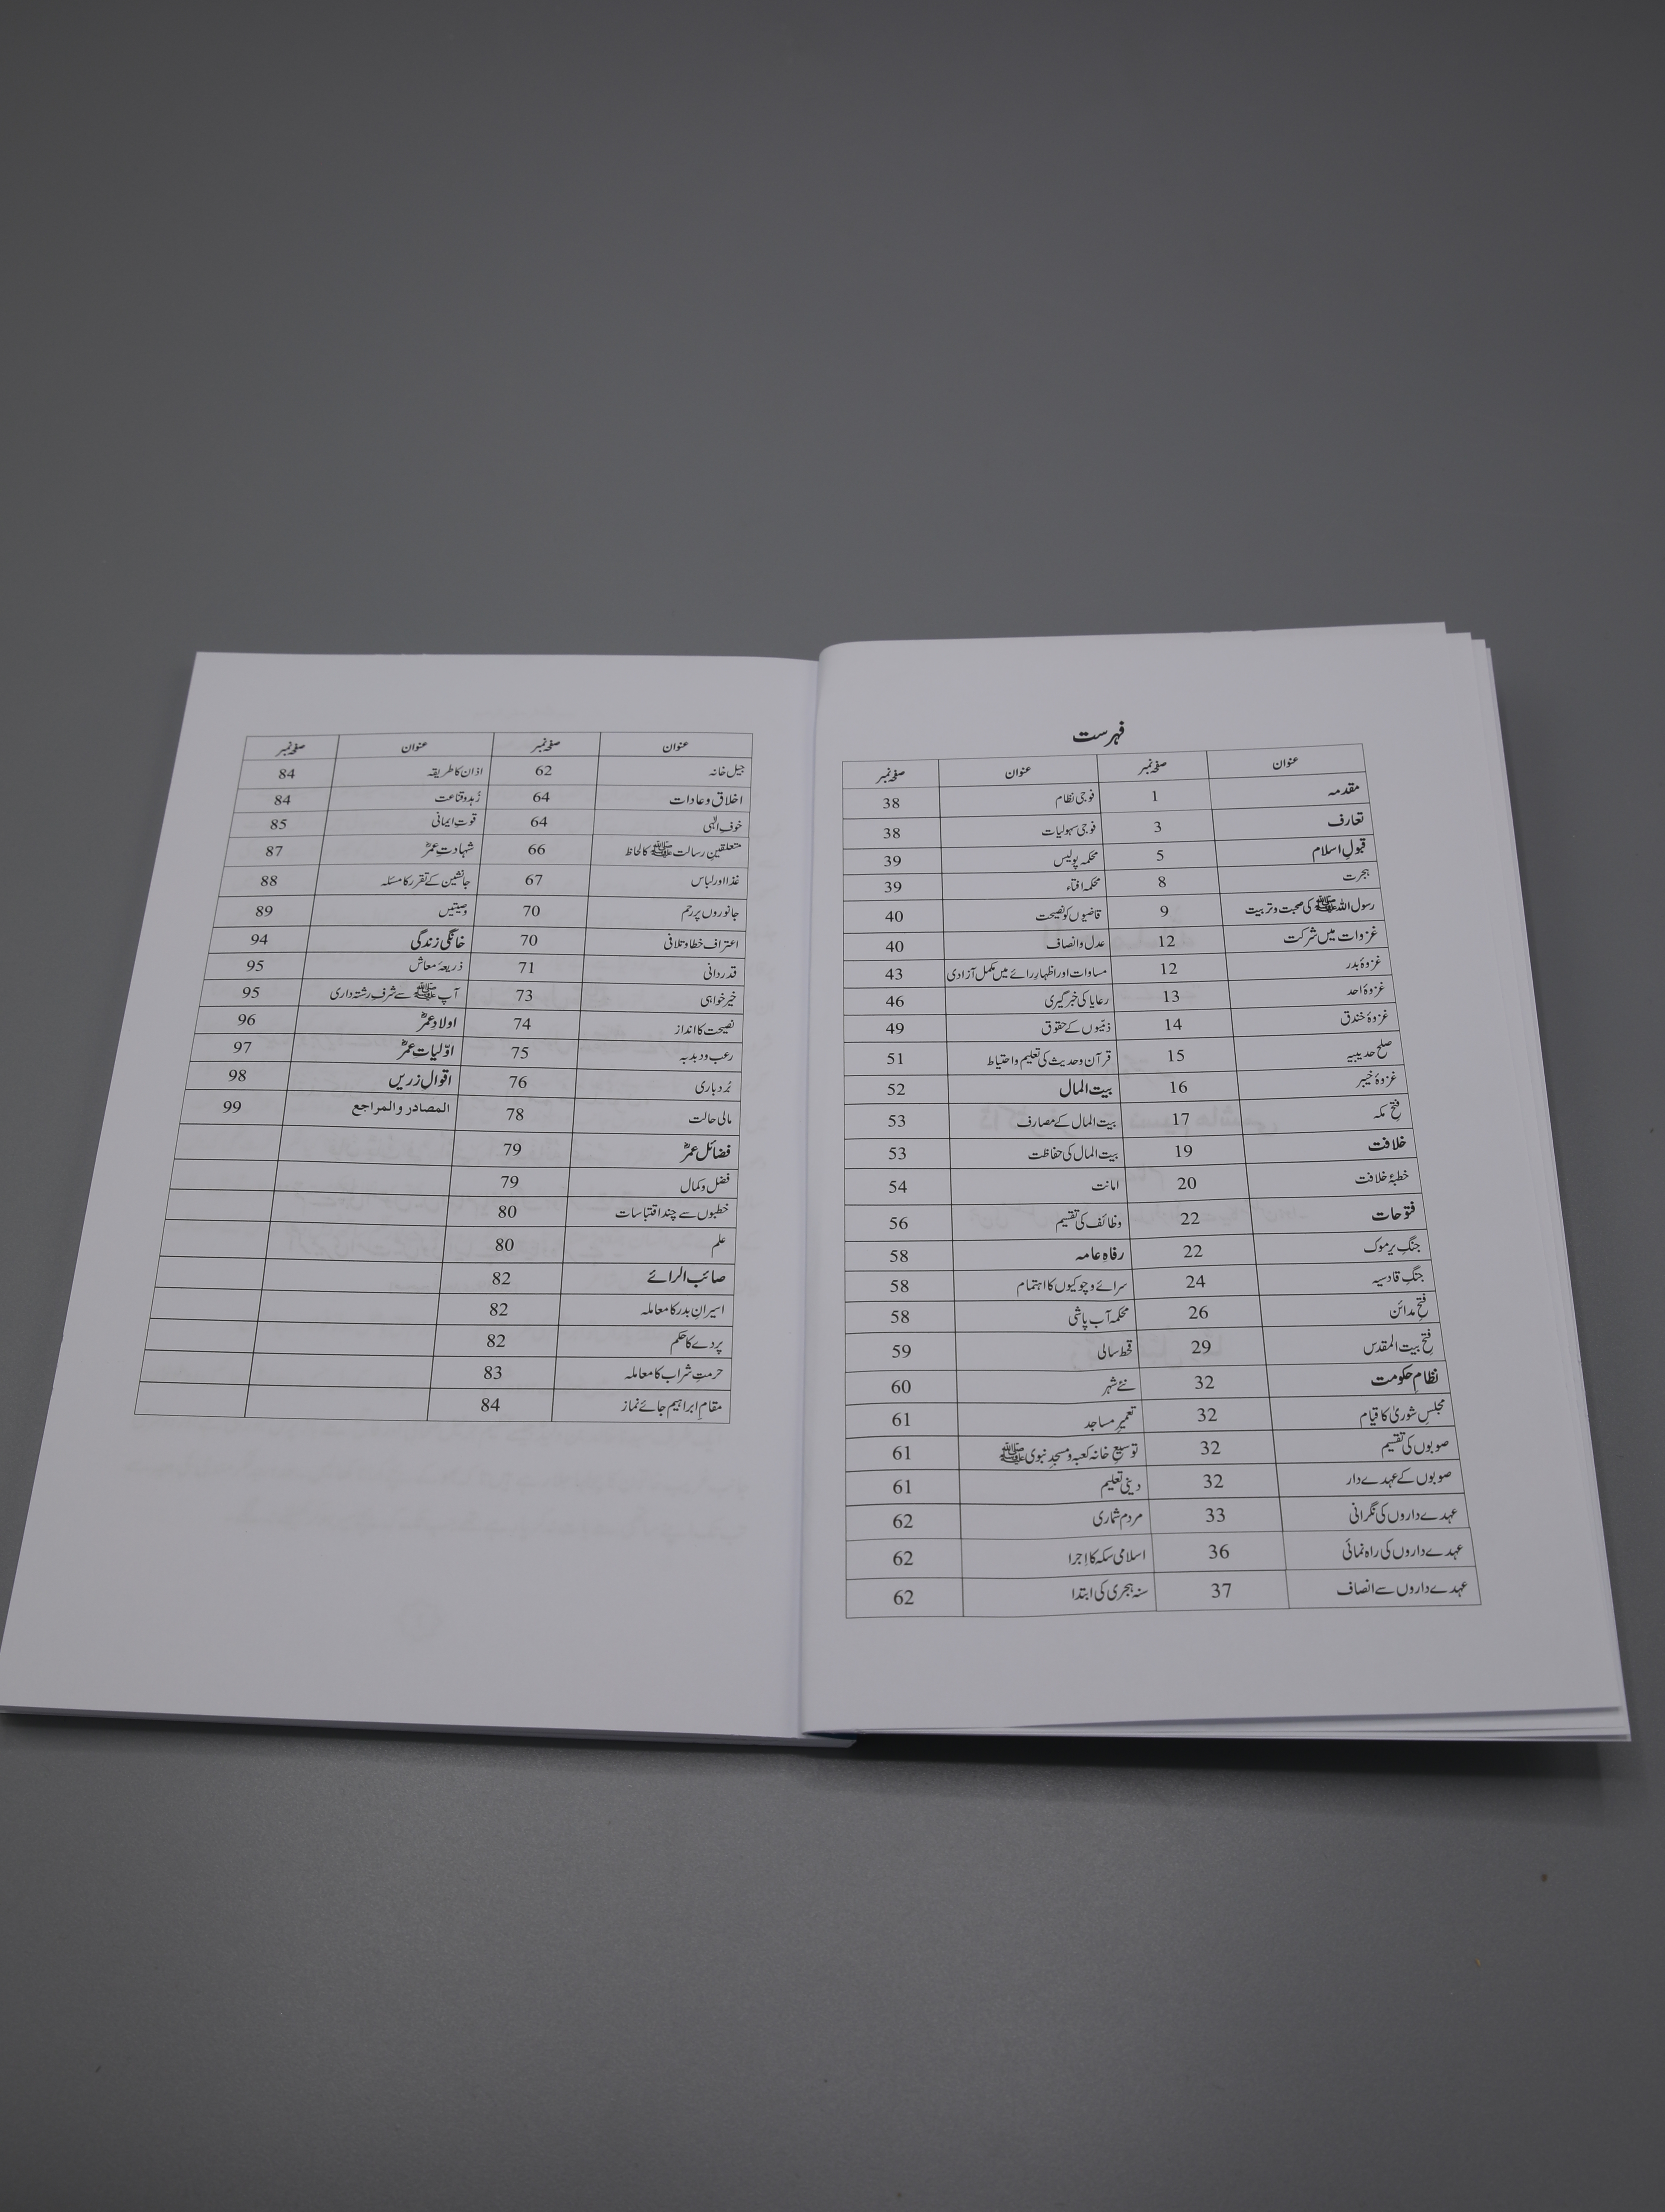 فہرست
عنوان صفحہ نمبر عنوان صفحہ نمبر
مقدمہ 1 فوجی نظام 38
تعارف 3 فوجی سہولیات 38
قبولِ اسلام 5 محکمہ پولیس 39
ہجرت 8 محکمہ افتاء 39
رسول اللہ ﷺ کی صحبت و تربیت 9 قاضیوں کو نصیحت 40
غزوات میں شرکت 12 عدل و انصاف 40
غزوۂ بدر 12 مساوات اور اظہارِ رائے میں مکمل آزادی 43
غزوۂ احد 13 رعایا کی خبر گیری 46
غزوۂ خندق 14 ذمّیوں کے حقوق 49
صلح حدیبیہ 15 قرآن و حدیث کی تعلیم و احتیاط 51
غزوۂ خیبر 16 بیت المال 52
فتحِ مکہ 17 بیت المال کے مصارف 53
خلافت 19 بیت المال کی حفاظت 53
خطبۂ خلافت 20 امانت 54
فتوحات 22 وظائف کی تقسیم 56
جنگِ یرموک 22 رفاہِ عامہ 58
جنگِ قادسیہ 24 سرائے و چوکیوں کا اہتمام 58
فتحِ مدائن 26 محکمہ آب پاشی 58
فتحِ بیت المقدس 29 قحط سالی 59
نظامِ حکومت 32 نئے شہر 60
مجلسِ شوریٰ کا قیام 32 تعمیرِ مساجد 61
صوبوں کی تقسیم 32 توسیعِ خانہ کعبہ و مسجدِ نبوی ﷺ 61
صوبوں کے عہدے دار 32 دینی تعلیم 61
عہدے داروں کی نگرانی 33 مردم شماری 62
عہدے داروں کی راہ نمائی 36 اسلامی سکہ کا اِجرا 62
عہدے داروں سے انصاف 37 سنہ ہجری کی ابتدا 62
عنوان صفحہ نمبر عنوان صفحہ نمبر
جیل خانہ 62 اذان کا طریقہ 84
اخلاق و عادات 64 زُہد و قناعت 84
خوفِ الٰہی 64 قوتِ ایمانی 85
متعلقینِ رسالت ﷺ کا لحاظ 66 شہادتِ عمرؓ 87
غذا اور لباس 67 جانشین کے تقرر کا مسئلہ 88
جانوروں پر رحم 70 وصیتیں 89
اعتراف خطا و تلافی 70 خانگی زندگی 94
قدردانی 71 ذریعۂ معاش 95
خیر خواہی 73 آپ ﷺ سے شرفِ رشتہ داری 95
نصیحت کا انداز 74 اولادِ عمرؓ 96
رعب و دبدبہ 75 اوّلیات عمرؓ 97
بُردباری 76 اقوالِ زریں 98
مالی حالت 78 المصادر والمراجع 99
فضائل عمرؓ 79
فضل و کمال 79
خطبوں سے چند اقتباسات 80
علم 80
صائب الرائے 82
اسیرانِ بدر کا معاملہ 82
پردے کا حکم 82
حرمتِ شراب کا معاملہ 83
مقامِ ابراہیم جائے نماز 84